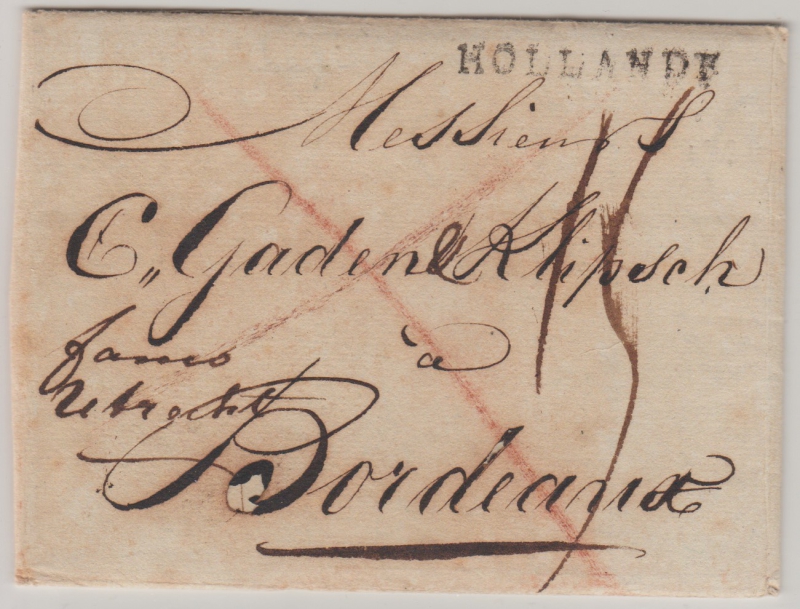 HOLLANDE
Messieurs
C. Gaden & Klipsch
à
franco
Utrecht
Bordeaux
15